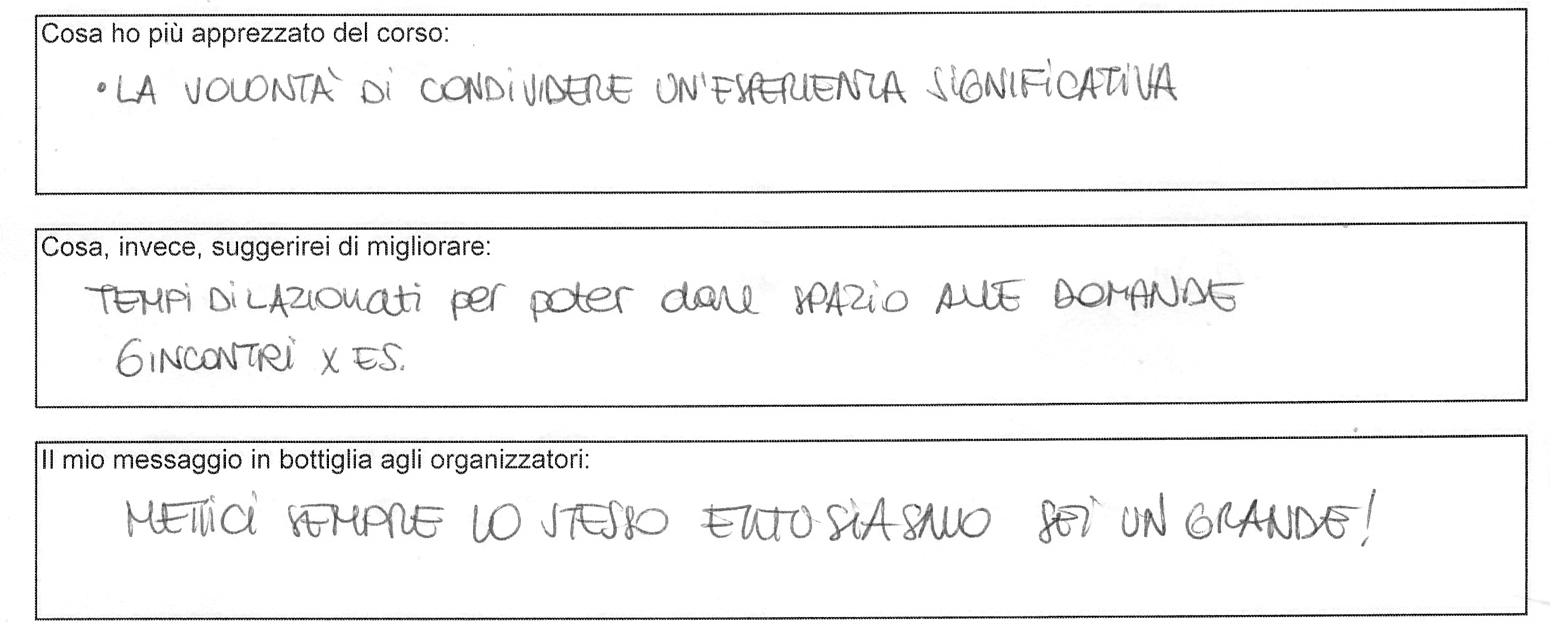 Cosa ho più apprezzato del corso:
• LA VOLONTÀ Di CONDIVIDERE UN'ESPERIENZA SIGNIFICATIVA
Cosa, invece, suggerirei di migliorare:
TEMPi DiLAZIONati per poter dare SPAZIO ALLE DOMANDE
6 INCONTRI X ES.
Il mio messaggio in bottiglia agli organizzatori:
METTICI SEMPRE LO STESSO ENTUSIASMO SEI UN GRANDE!